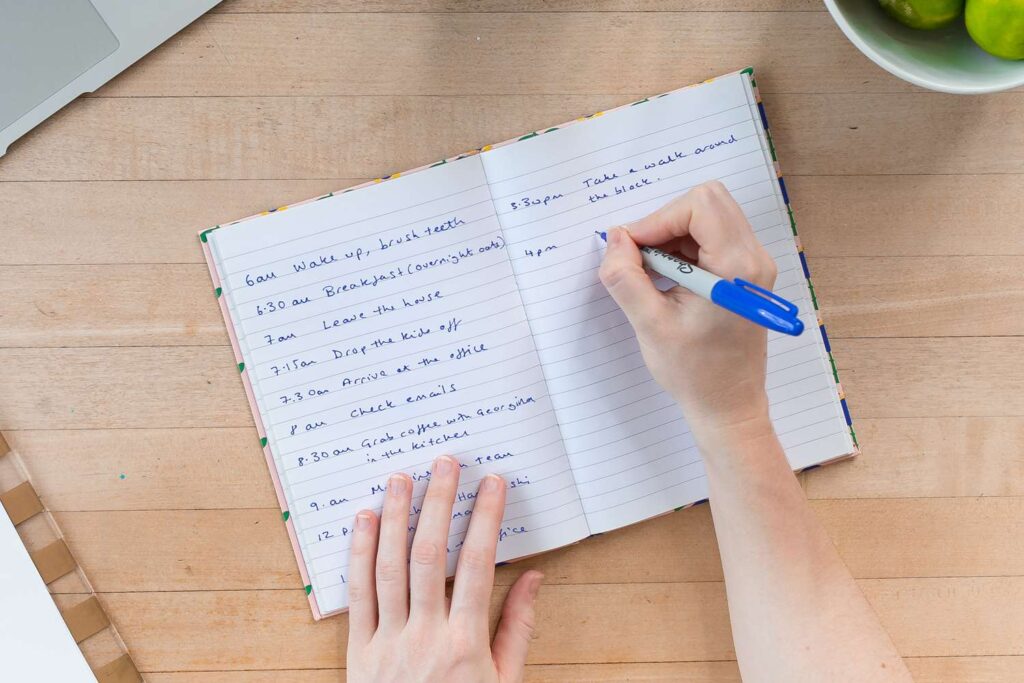 6am Wake up, brush teeth
6.30 am Breakfast (overnight oats)
7am Leave the house
7.15am Drop the kids off
7.30am Arrive at the office
8 am check emails
8.30am Grab coffee with Georgina
in the kitchen
9.am team
12
office
1
3.30pm Take a walk around
the block.
4pm
Sharpie